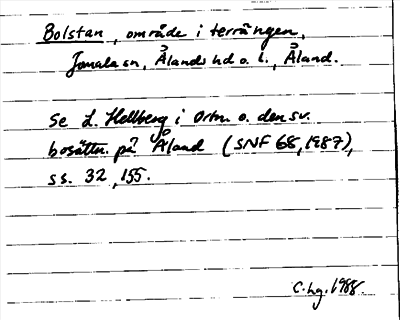 Bolstan, område i terrängen,
Jomala sn, Ålands hd o. l., Åland.
Se L. Hellberg i Ortn. o. den sv.
bosättn. på Åland (SNF 68, 1987),
ss. 32, 155.
C. Hg. 1988.